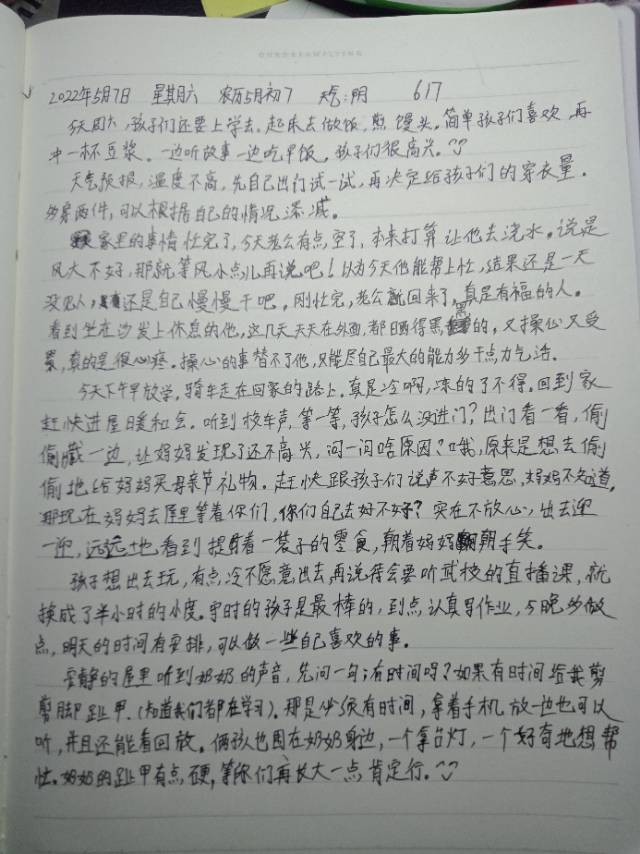 2022年5月7日 星期六 农历5月初7 天气:阴 617
今天周六,孩子们还要上学去。起床去做饭。熬馒头。简单孩子们喜欢,再
冲一杯豆浆。一边听故事一边吃早饭。孩子们很高兴。
天气预报,温度不高,先自己出门试一试,再决定给孩子们的穿衣量。
多穿两件,可以根据自己的情况添减。
家里的事情忙完了,今天老公有点空了,本来打算让他去浇水。说是
风大不好,那就等风小点儿再说吧!以为今天他能帮上忙,结果还是一天
没见人,还是自己慢慢干吧。刚忙完,老公就回来了,真是有福的人。
看到坐在沙发上休息的他,这几天天在外面,都晒得黑黑的,又操心又受
累,真的是很心疼。操心的事替不了他,只能尽自己最大的能力多干点力气活。
今天下午早放学,骑车走在回家的路上。真是冷啊,冻的了不得。回到家
赶快进屋暖和会。听到校车声,等一等,孩子怎么没进门?出门看一看,偷
偷藏一边,让妈妈发现了还不高兴,问一问啥原因?哦,原来是想去偷
偷地给妈妈买母亲节礼物。赶快跟孩子们说声不好意思,妈妈不知道,
那现在妈妈去屋里等着你们,你们自己去好不好?实在不放心,出去迎
一迎,远远地看到提着一袋子的零食,朝着妈妈翘翘手笑。
孩子想出去玩,有点冷不愿意出去,再说待会要听武校的直播课,就
换成了半小时的小度。守时的孩子是最棒的,到点认真写作业,今晚多做
点,明天的时间有安排,可以做一些自己喜欢的事。
安静的屋里听到奶奶的声音,先问一句:有时间吗?如果有时间给我剪
剪脚趾甲。(知道我们都在学习)。那是必须有时间,拿着手机放一边也可以
听,并且还能看回放。俩孩也围在奶奶身边,一个拿台灯,一个好奇地想帮
忙。奶奶的趾甲有点硬,等你们再长大一点肯定行。